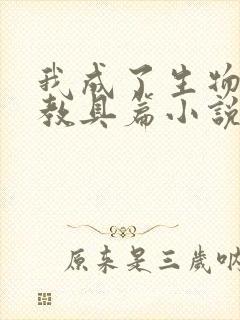 我成了生物
教具篇小说
原来是三岁呐